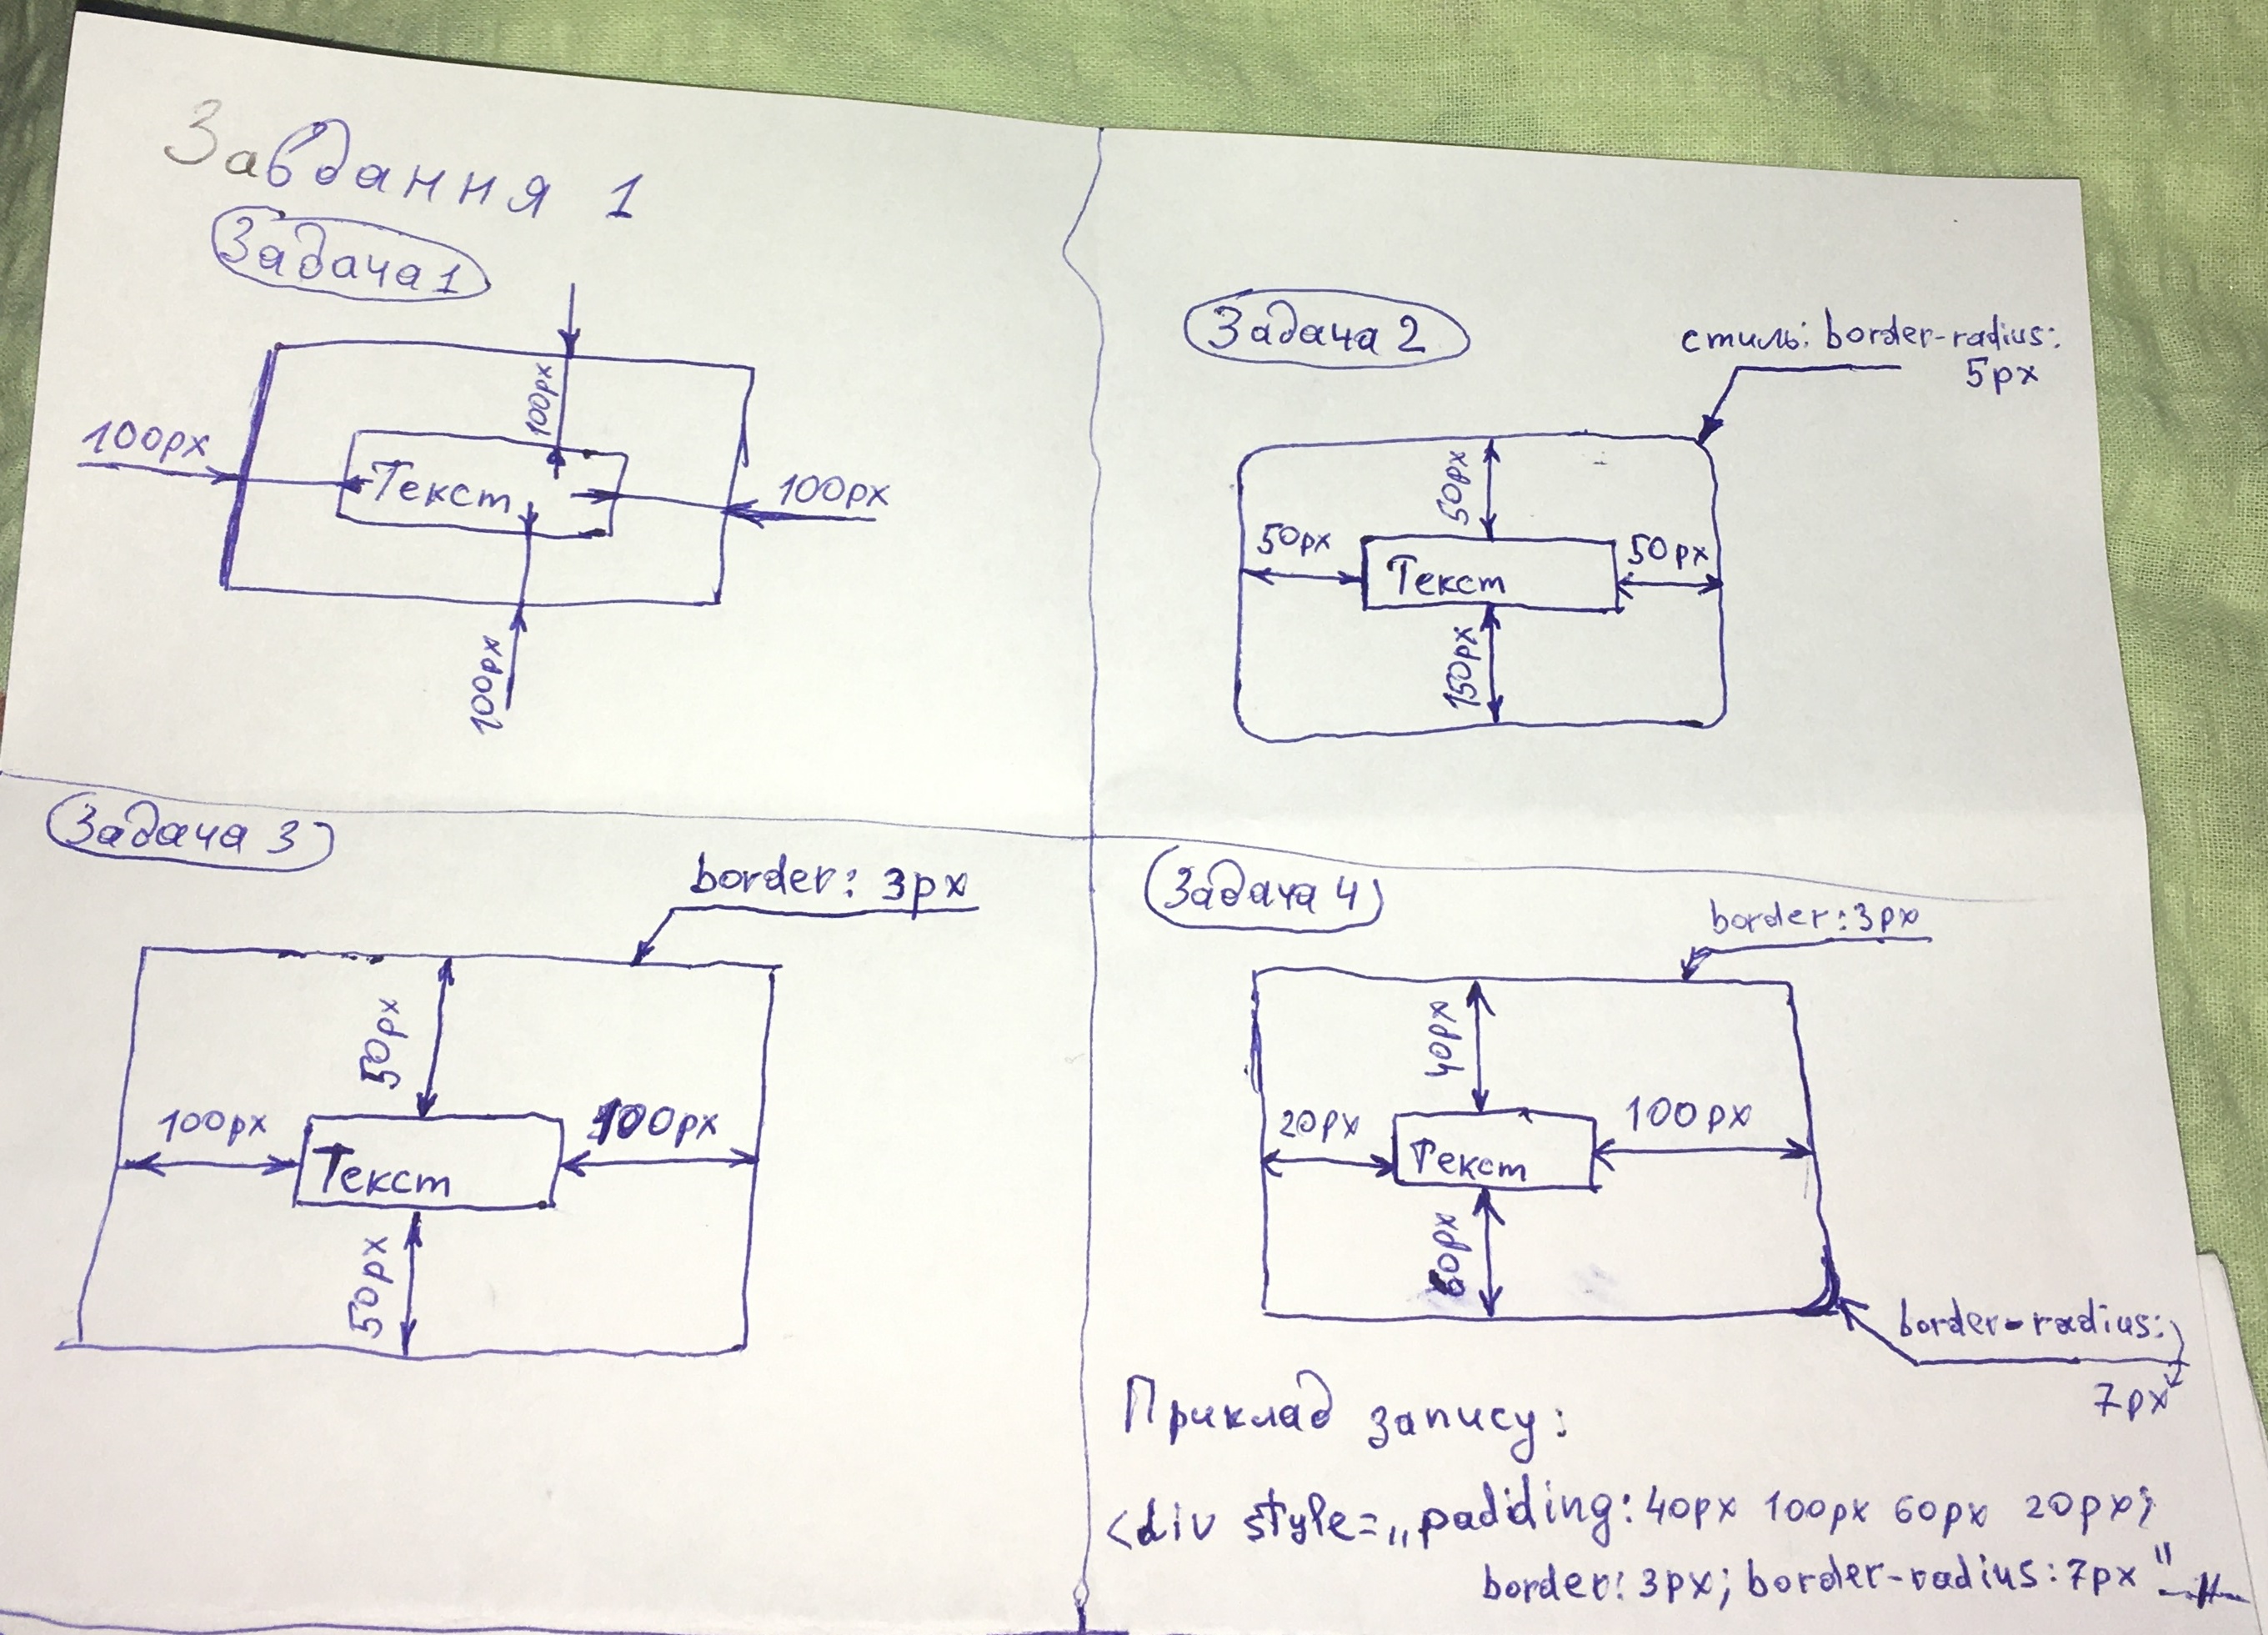 Завдання 1
Задача 1
100px
100px
Текст
100px
100px
Задача 2
стиль: border-radius:
5px
50px
50px
50px
Текст
150px
Задача 3
border: 3px
50px
100px
100px
Текст
50px
Задача 4
border: 3px
40px
20px
100px
Текст
60px
border-radius:
7px
Приклад запису:
<div style=„padding: 40px 100px 60px 20px;
border: 3px; border-radius: 7px"